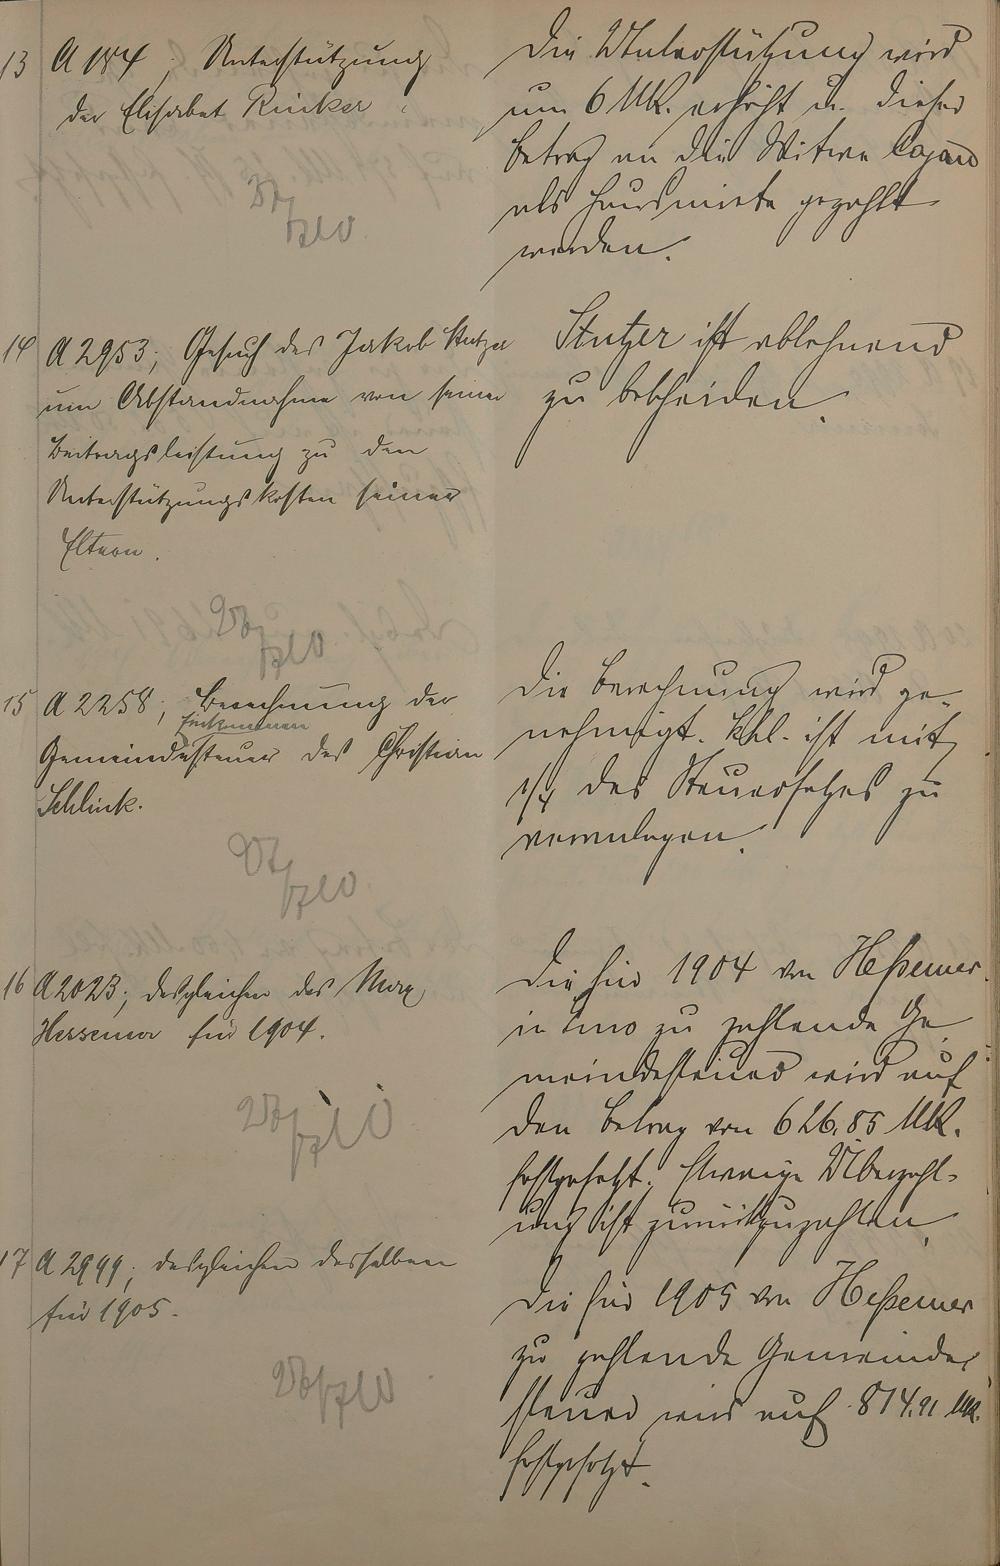 13 A 184; Unterstützung
der Elisabet Rinker
Die Unterstützung wird
um 6 Mk. erhöht u. dieser
Betrag an die Witwe
als Hausmiete gezahlt
werden.
14 A 2953; Gesuch des Jakob Stutzer
um Abstandnahme von seiner
Beitragsleistung zu den
Unterstützungskosten seiner
Eltern.
Stutzer ist ablehnend
zu bescheiden.
15 A 2258; Berechnung der
Einkommen
Gemeindesteuer des Christian
Schlink.
Die Berechnung wird ge-
nehmigt. Schl. ist mit
1/4 des Steuersatzes zu
veranlagen.
16 A 2023; desgleichen des Max
Hessemer für 1904.
Die für 1904 von Heßemer
zu zahlende Ge-
meindesteuer wird auf
den Betrag von 626,85 Mk.
festgesetzt. Etwaige Überzahl-
ung ist zurückzuzahlen.
17 A 2999; desgleichen desselben
für 1905.
Die für 1905 von Heßemer
zu zahlende Gemeinde-
steuer wird auf 874.91 Mk.
festgesetzt.